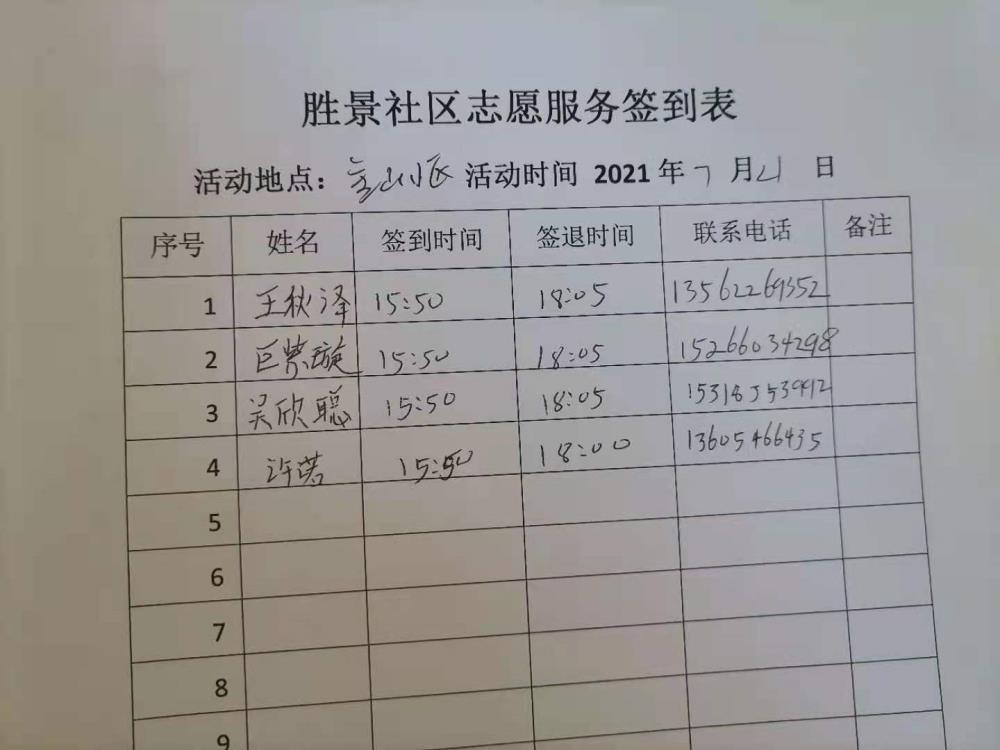 胜景社区志愿服务签到表
活动地点：金山小区 活动时间 2021 年 7 月 4 日
序号 姓名 签到时间 签退时间 联系电话 备注
1 王秋泽 15:50 18:05 13562269352
2 巨紫璇 15:50 18:05 15266034298
3 吴欣聪 15:50 18:05
4 许诺 15:50 18:00 13605466435
5
6
7
8
9